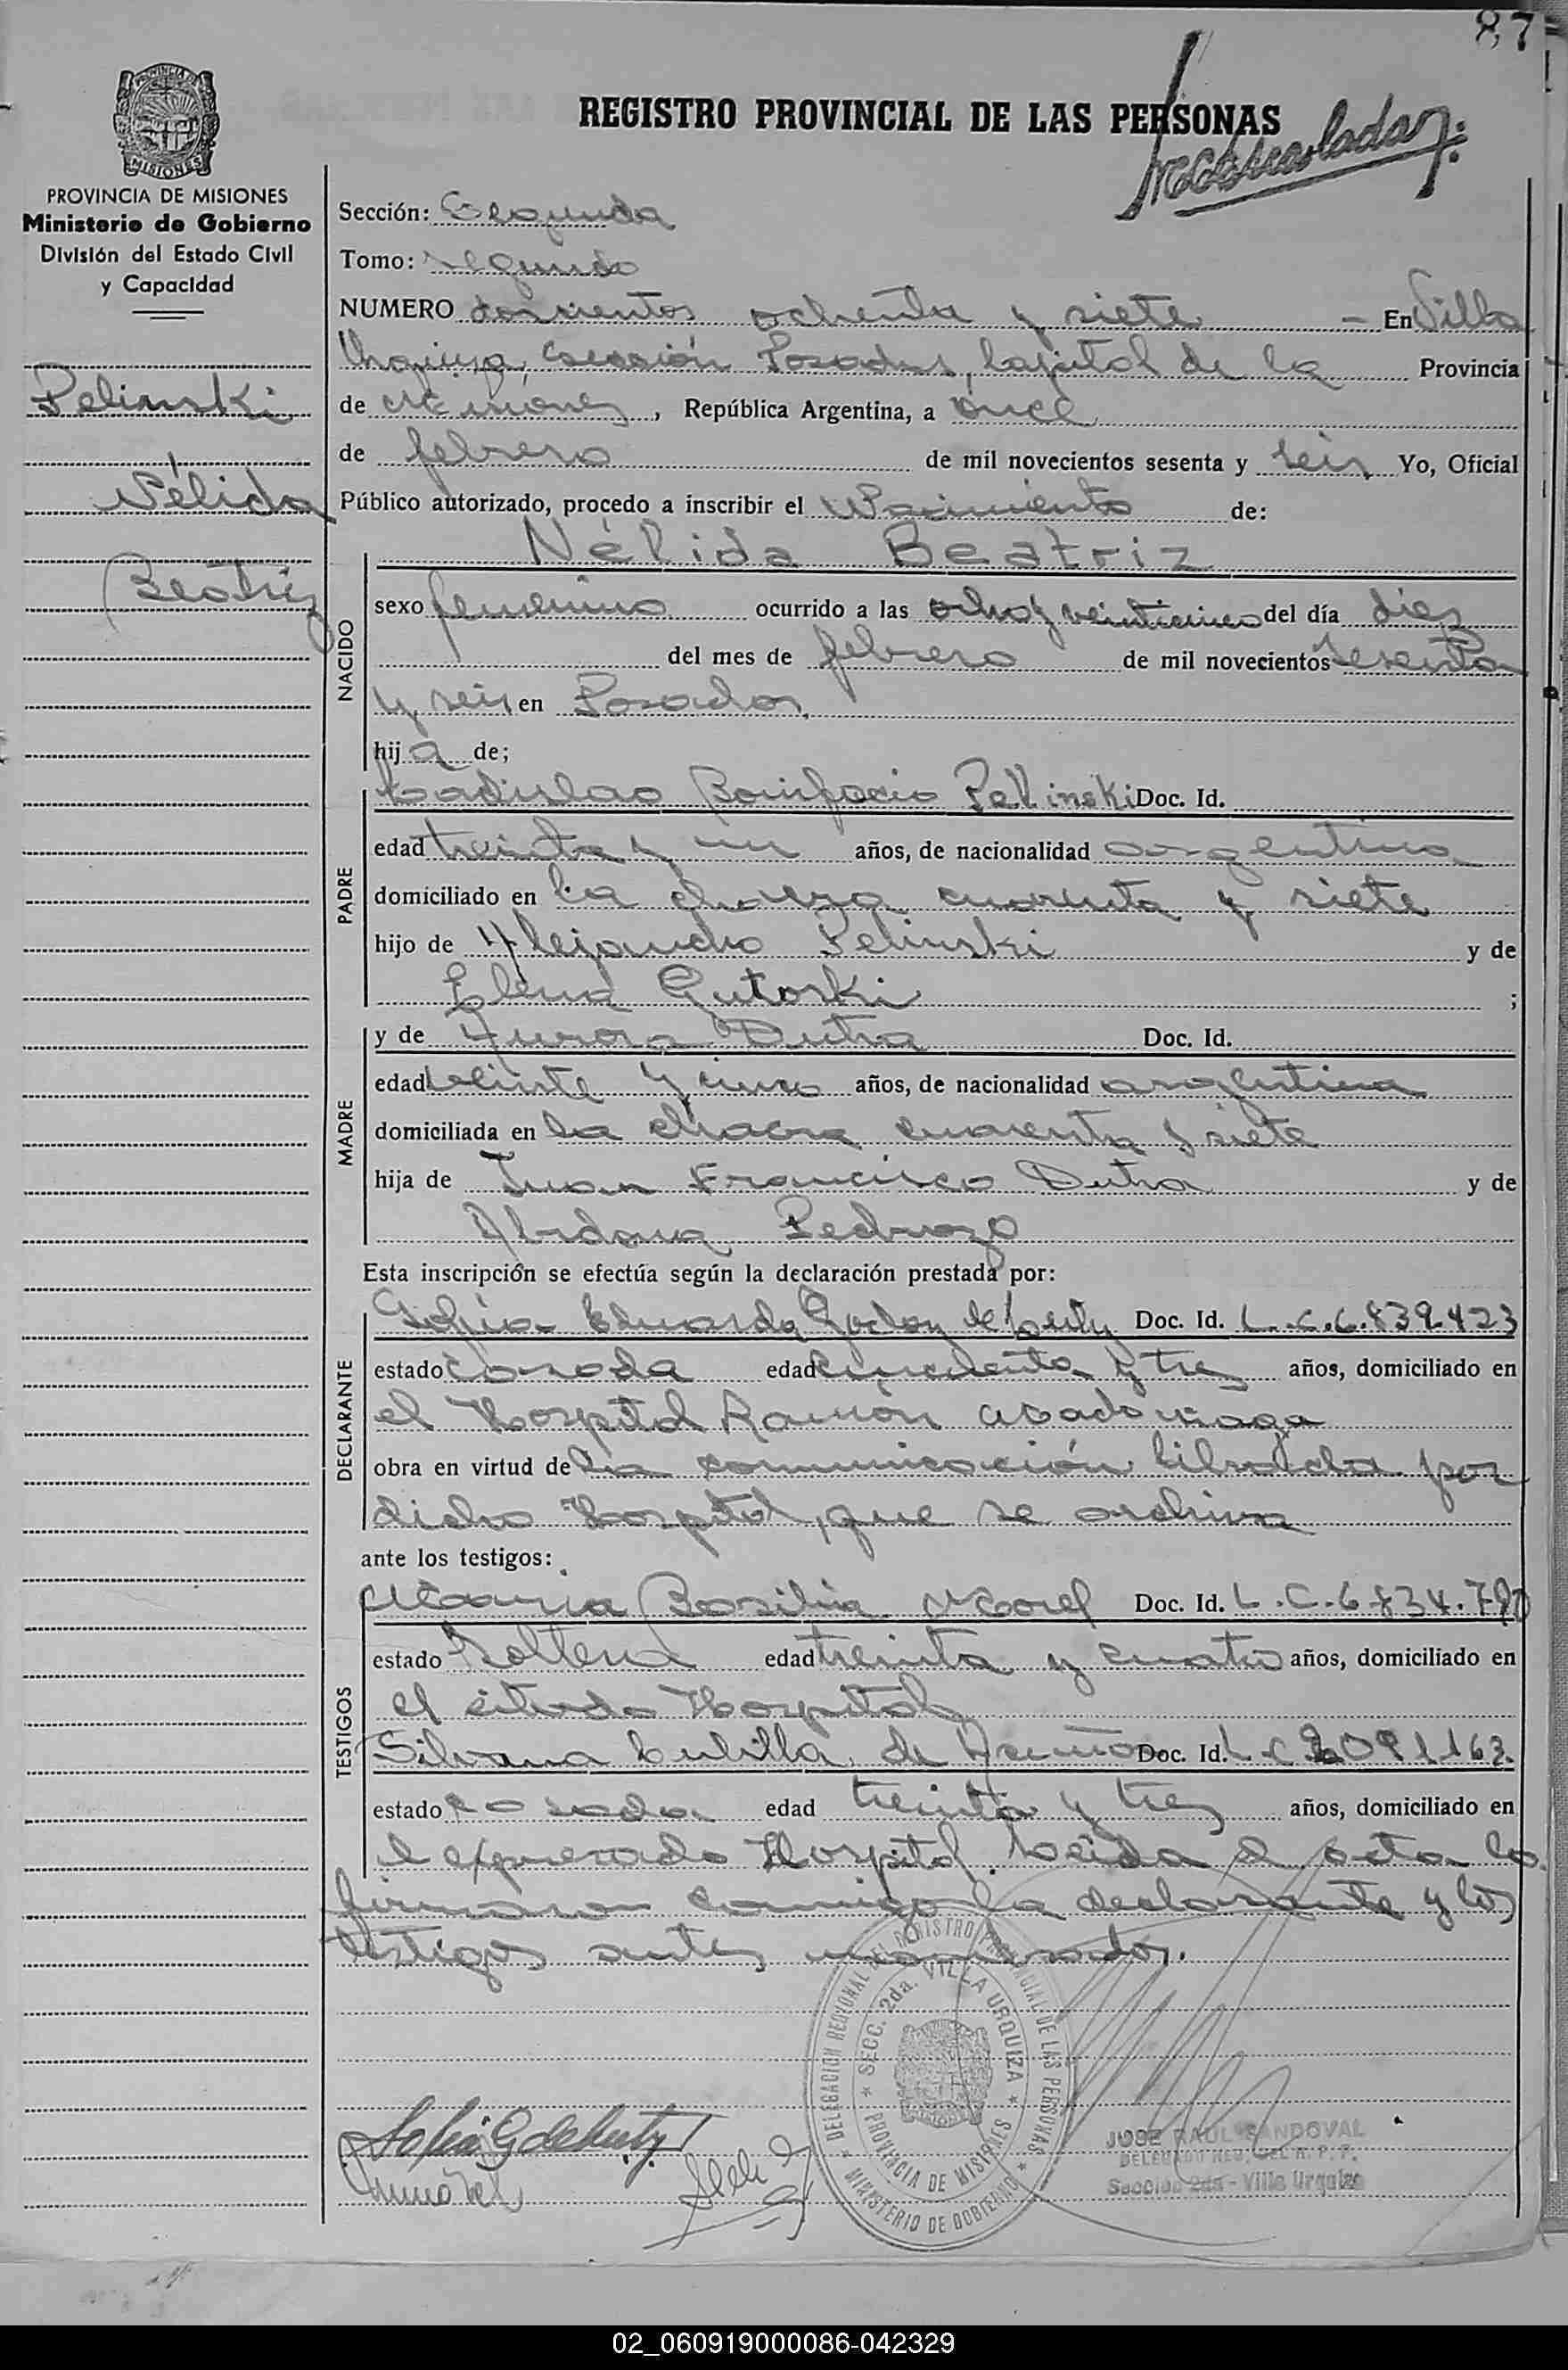 87
REGISTRO PROVINCIAL DE LAS PERSONAS
PROVINCIA DE MISIONES
Ministerio de Gobierno
División del Estado Civil
y Capacidad
Pelinski
Nélida
Beatriz
Sección: Segunda
Tomo: segundo
NUMERO doscientos ochenta y siete - En Villa
Urquiza, Sección Posadas, Capital de la Provincia
de Misiones, República Argentina, a once
de febrero de mil novecientos sesenta y seis Yo, Oficial
Público autorizado, procedo a inscribir el Nacimiento de:
NACIDO
Nélida Beatriz
sexo femenino ocurrido a las ocho y veinticinco del día diez
del mes de febrero de mil novecientos sesenta
y seis en Posadas
hija de;
PADRE
Ladislao Bonifacio Pelinski Doc. Id.
edad treinta y un años, de nacionalidad argentina
domiciliado en la chacra cuarenta y siete
hijo de Alejandro Pelinski y de
Elena Gutoski ;
MADRE
y de Aurora Dutra Doc. Id.
edad veinte y cinco años, de nacionalidad argentina
domiciliada en la chacra cuarenta y siete
hija de Juan Francisco Dutra y de
Pedrozo
Esta inscripción se efectúa según la declaración prestada por:
DECLARANTE
Sofía Eduarda Godoy de Doc. Id. L.C.6.839.423
estado casada edad cincuenta y tres años, domiciliado en
el Hospital Ramón
obra en virtud de la comunicación librada por
dicho Hospital, que se archiva
ante los testigos:
TESTIGOS
María Basilia Morel Doc. Id. L.C.6.834.
estado soltera edad treinta y cuatro años, domiciliado en
el citado Hospital
Silvana Cubilla de Doc. Id. L.C. 091163.
estado casada edad treinta y tres años, domiciliado en
el expresado Hospital. Leída el acta la
firmaron conmigo la declarante y los
testigos antes mencionados.
DELEGACION REGIONAL DEL REGISTRO PROVINCIAL DE LAS PERSONAS
SECC. 2da. VILLA URQUIZA
PROVINCIA DE MISIONES
MINISTERIO DE GOBIERNO
JOSE RAUL SANDOVAL
DELEGADO REG. DEL R. P. P.
Sección 2da - Villa Urquiza
02_060919000086-042329